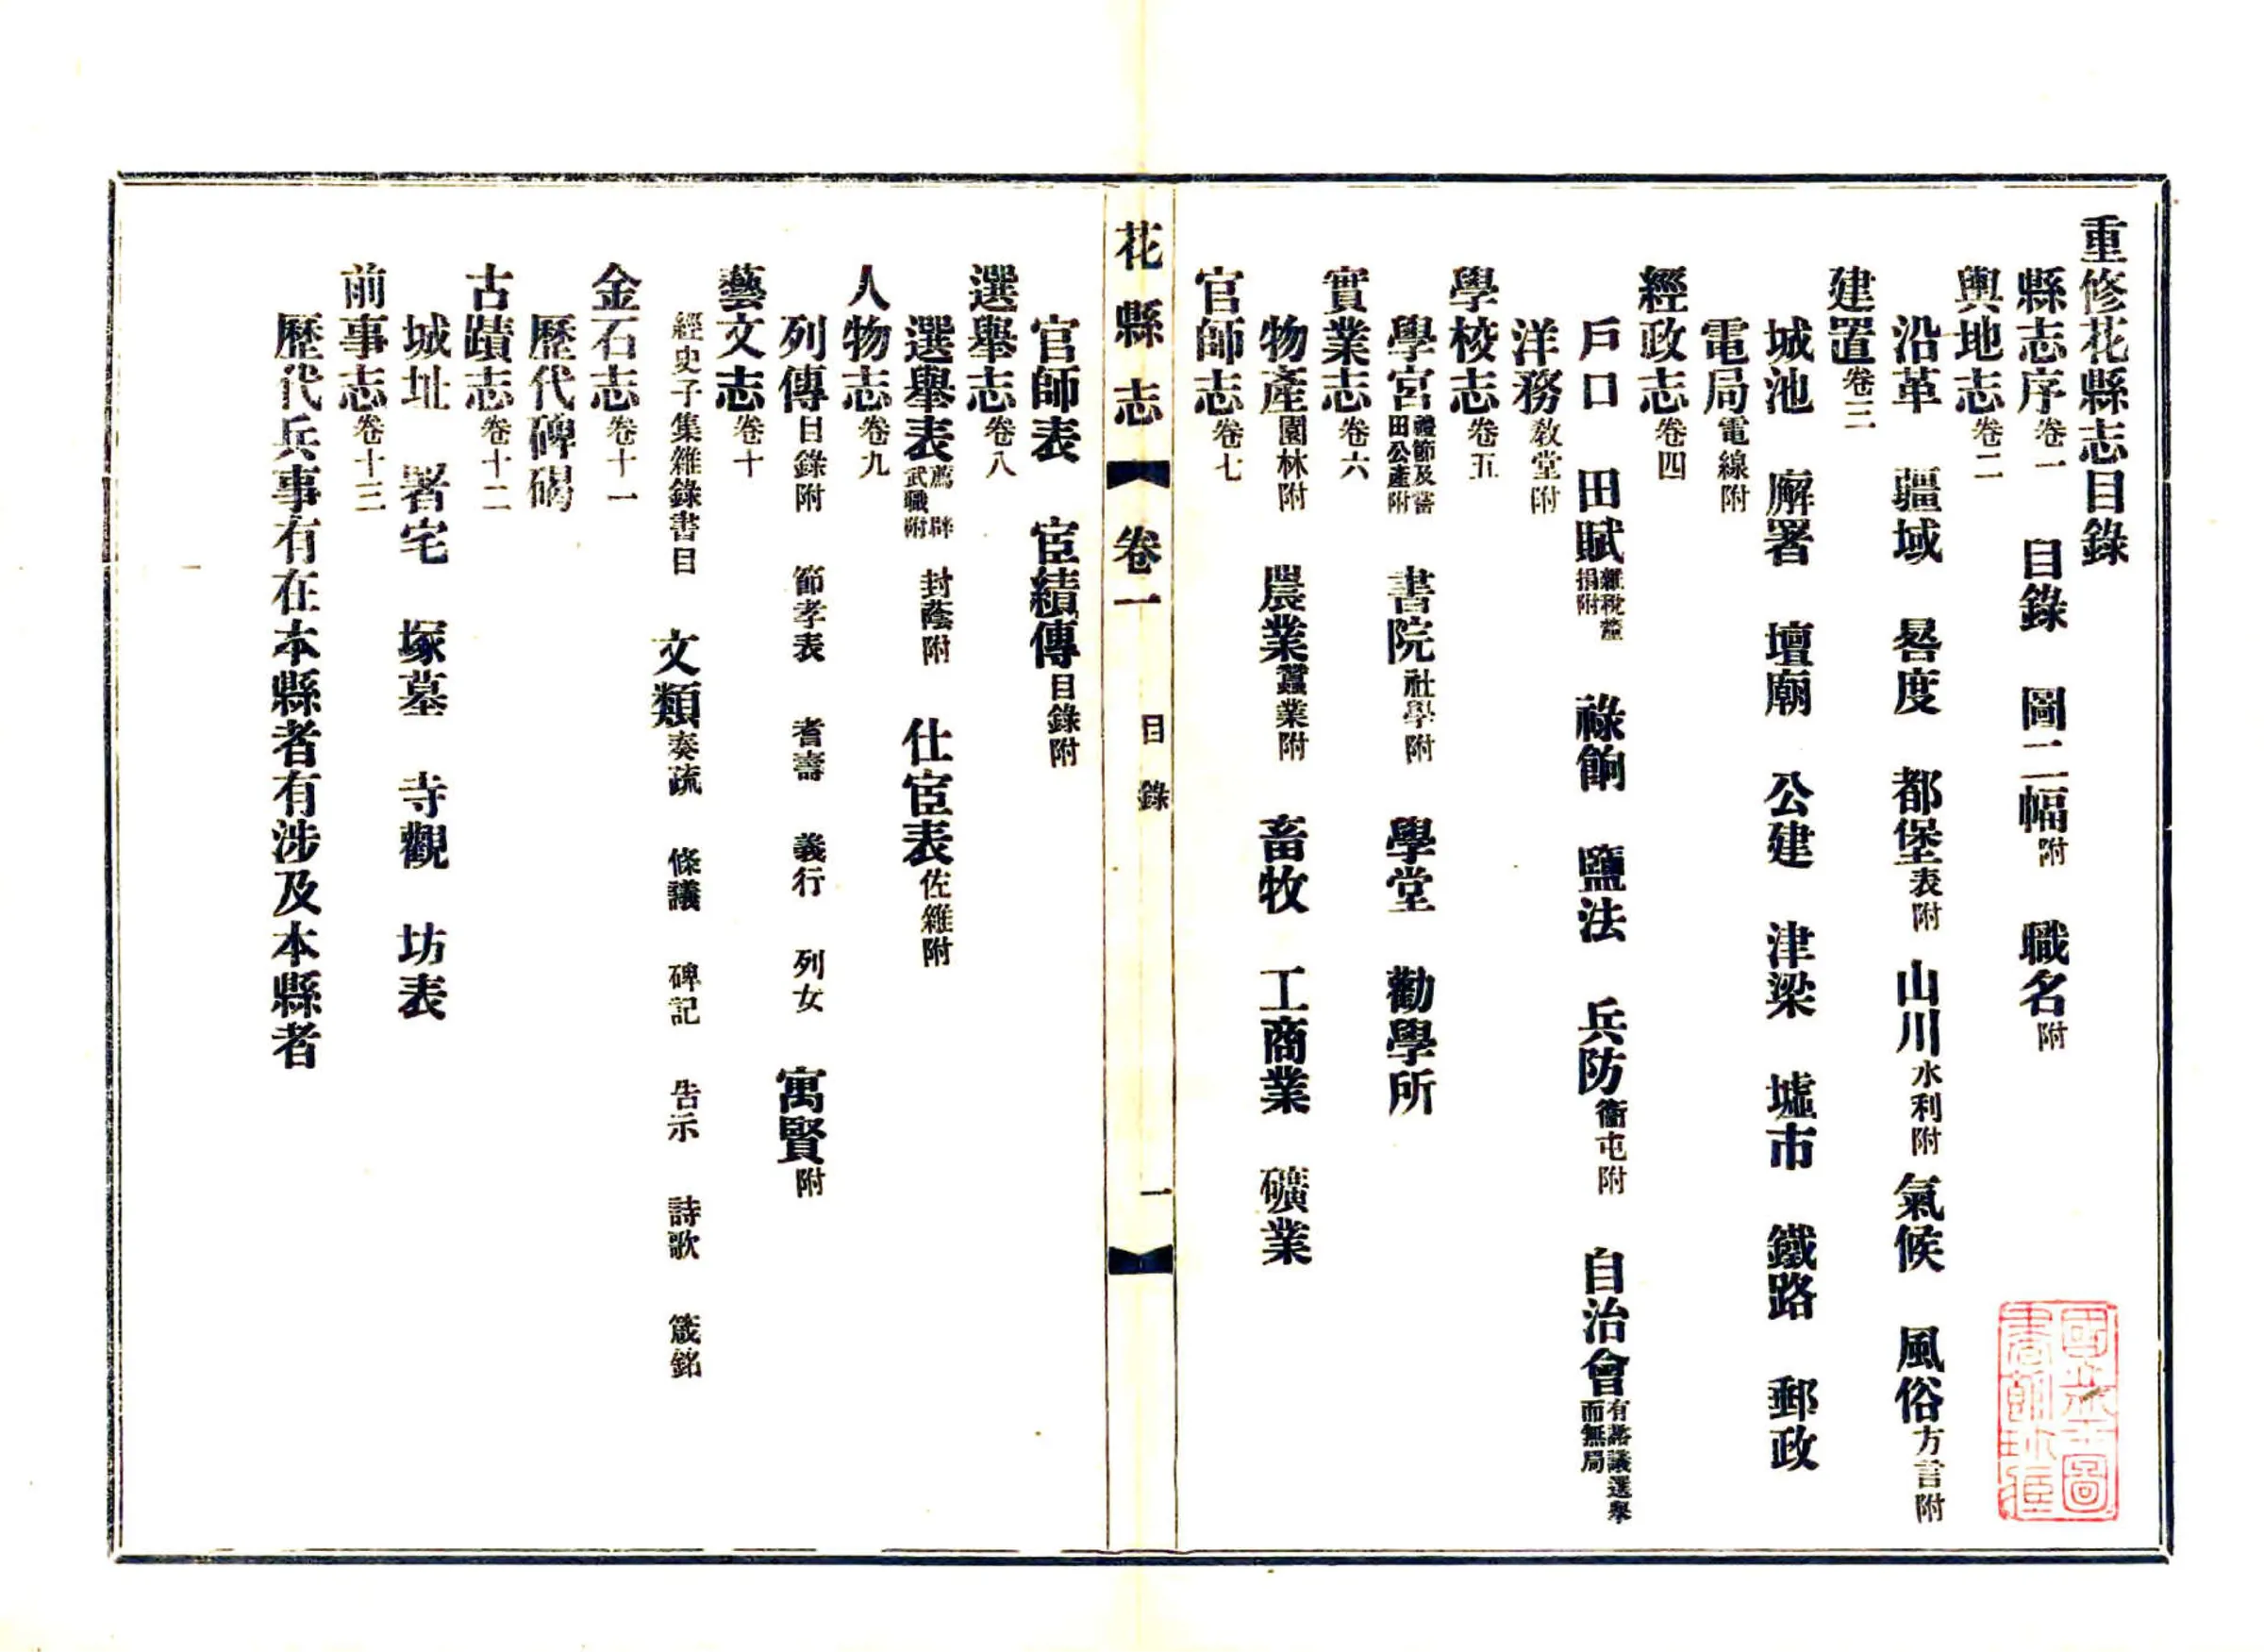 重修花縣志目錄
縣志序卷一 目錄 圖二幅附 職名附
輿地志卷二
沿革 疆域 晷度 都堡表附 山川水利附 氣候 風俗方言附
建置卷三
城池 廨署 壇廟 公建 津梁 墟市 鐵路 郵政
電局電線附
經政志卷四
戶口 田賦雜稅釐捐附 祿餉 鹽法 兵防衞屯附 自治會有諮議選舉而無局
洋務教堂附
學校志卷五
學宮禮節及嘗田公產附 書院社學附 學堂 勸學所
實業志卷六
物產園林附 農業蠶業附 畜牧 工商業 礦業
官師志卷七
花縣志 卷一 目錄 一
官師表 宦績傳目錄附
選舉志卷八
選舉表薦辟武職附 封蔭附 仕宦表佐雜附
人物志卷九
列傳目錄附 節孝表 耆壽 義行 列女 寓賢附
藝文志卷十
經史子集雜錄書目 文類奏疏 條議 碑記 告示 詩歌 箴銘
金石志卷十一
歷代碑碣
古蹟志卷十二
城址 署宅 塚墓 寺觀 坊表
前事志卷十三
歷代兵事有在本縣者有涉及本縣者